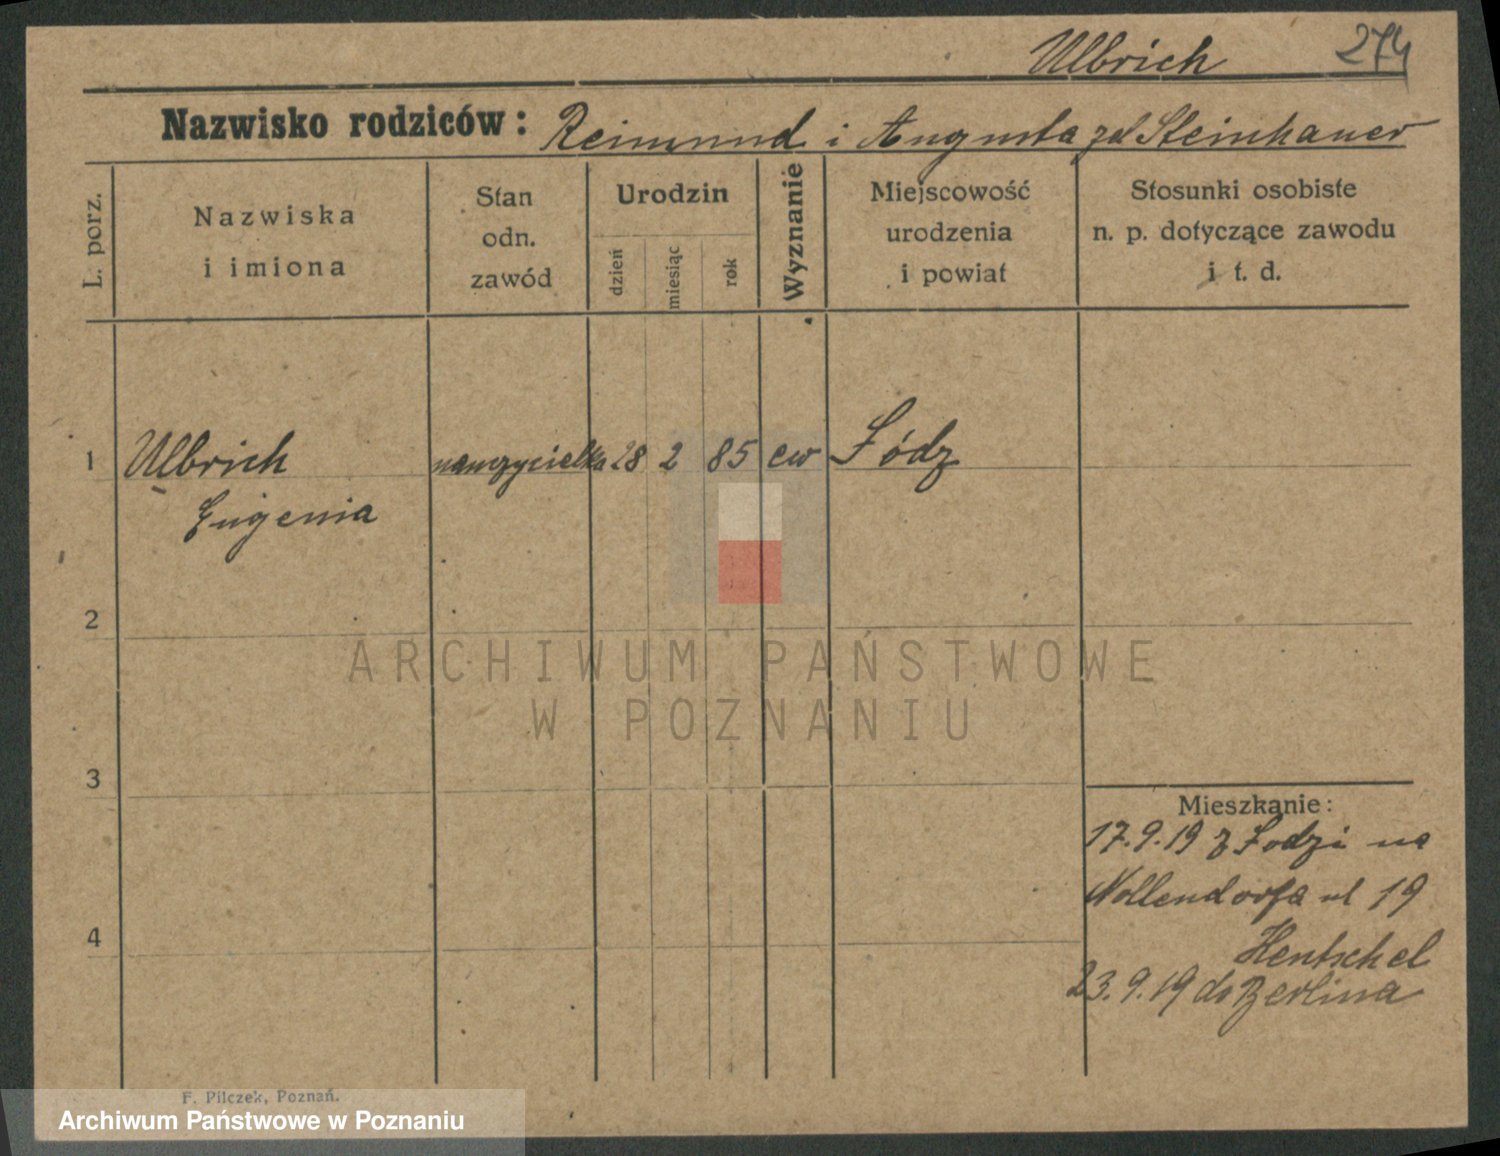 Ulbrich 274
Nazwisko rodziców: Reimund i Augusta zd Steinhauer
L. porz.
Nazwiska
i imiona
Stan
odn.
zawód
Urodzin
dzień
miesiąc
rok
Wyznanie
Miejscowość
urodzenia
i powiat
Stosunki osobiste
n. p. dotyczące zawodu
i t. d.
1 Ulbrich nauczycielka 28 2 85 ew Łódz
Eugenia
2
ARCHIWUM PAŃSTWOWE
W POZNANIU
3
Mieszkanie:
17.9.19 z Łodzi na
Nollendorfa ul 19
4
Hentschel
23.9.19 do Berlina
F. Pilczek, Poznań.
Archiwum Państwowe w Poznaniu